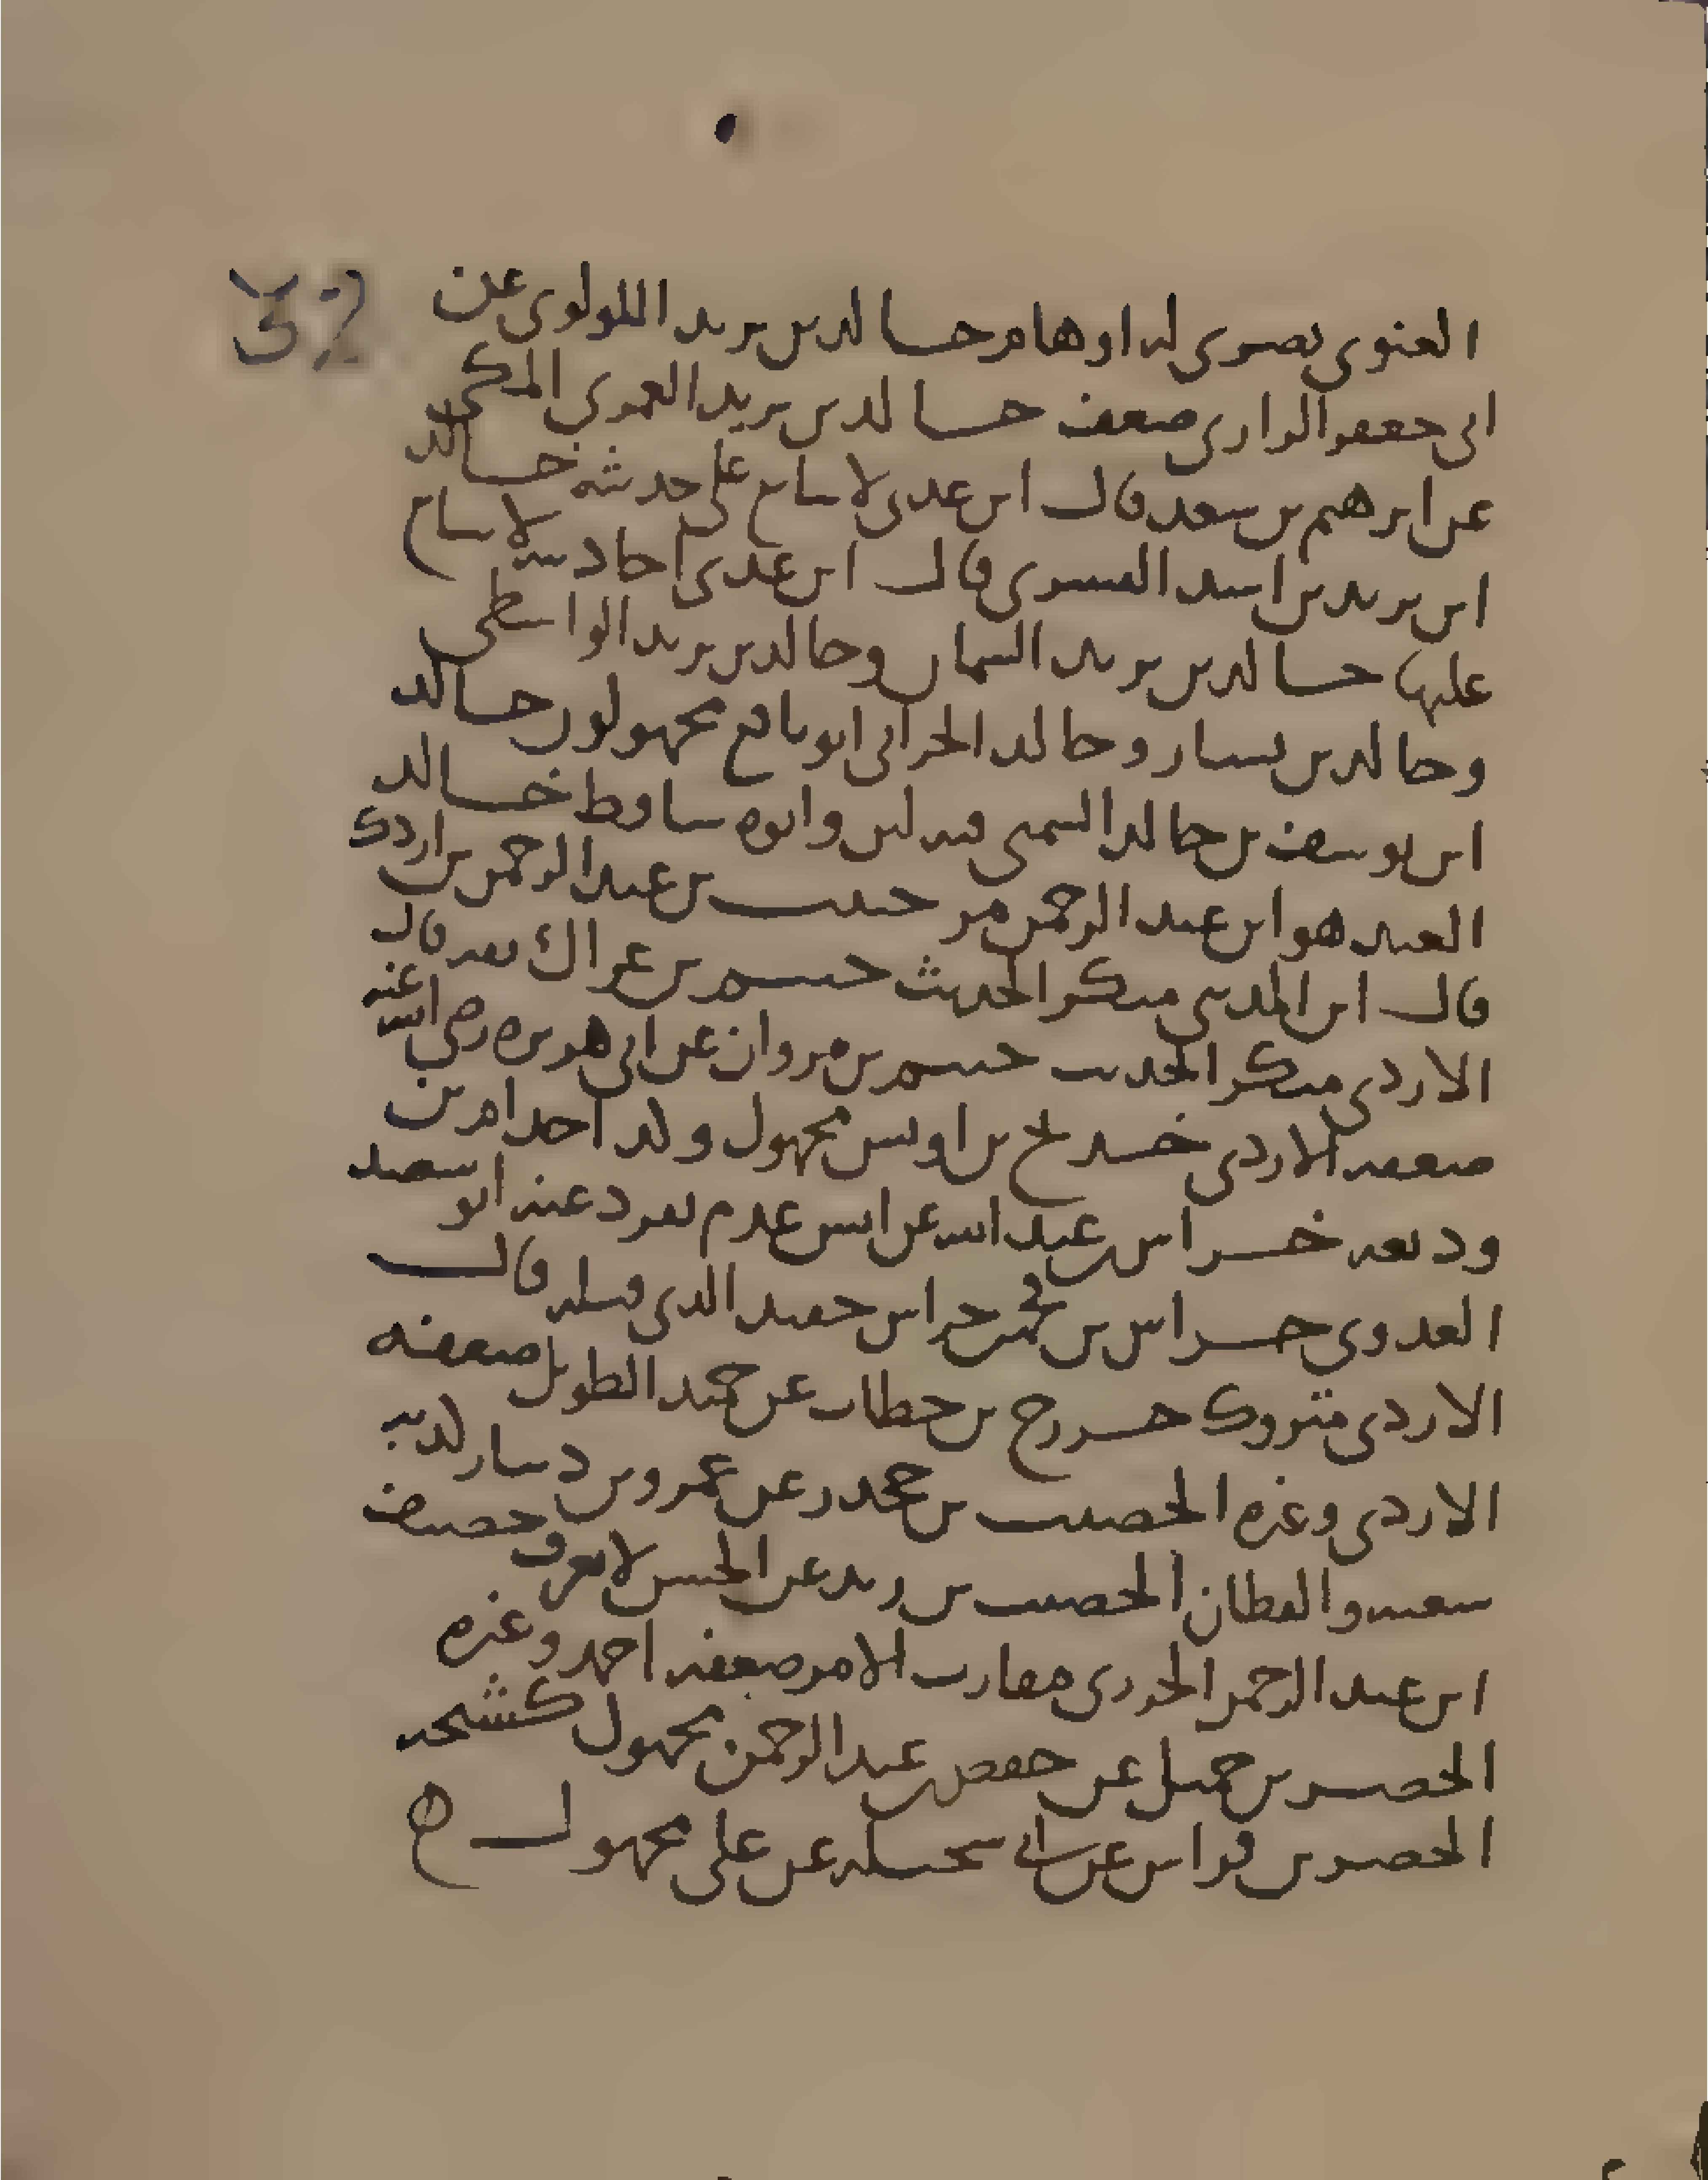 العنوي بصري له اوهام خالد بن يزيد اللولوي عن
ابي جعفر الرازي ضعف خالد بن يزيد العمري المكي
عن ابرهيم بن سعد قال ابن عدي لا يتابع على حديثه خالد
ابن يزيد بن اسد القسري قال ابن عدي احاديثه لا يتابع
عليها خالد بن يزيد السمان وخالد بن يزيد الواسطي
وخالد بن يسار وخالد الخراني ابو نافع مجهولون خالد
ابن يوسف بن خالد السمتي فيه لين وابوه ساقط خالد
العبد هو ابن عبد الرحمن مر خبيب بن عبد الرحمن بن اردك
قال ابن المديني منكر الحديث خثيم بن عراك ثقه قال
الازدي منكر الحديث خثيم بن مروان عن ابي هريره رضي الله عنه
ضعفه الازدي خديج بن اويس مجهول ولد احد امر بن
وديعه خراش بن عبد الله عن انس عدم تفرد عنه ابو سعيد
العدوي خراش بن محمد بن خراش حفيد الذي قبله قال
الازدي متروك خزرج بن خطاب عن حميد الطويل ضعفه
الازدي وغيره الخصيب بن جحدر عن عمرو بن دينار كذبه
شعبه والقطان الخصيب بن زيد عن الحسن لا يعرف خصيف
ابن عبد الرحمن الجزري مقارب الامر ضعفه احمد وغيره
الخضر بن جميل عن حفص بن عبد الرحمن مجهول كشيخه
الخضر بن قواس عن ابي سخيله عن علي مجهول ه
32